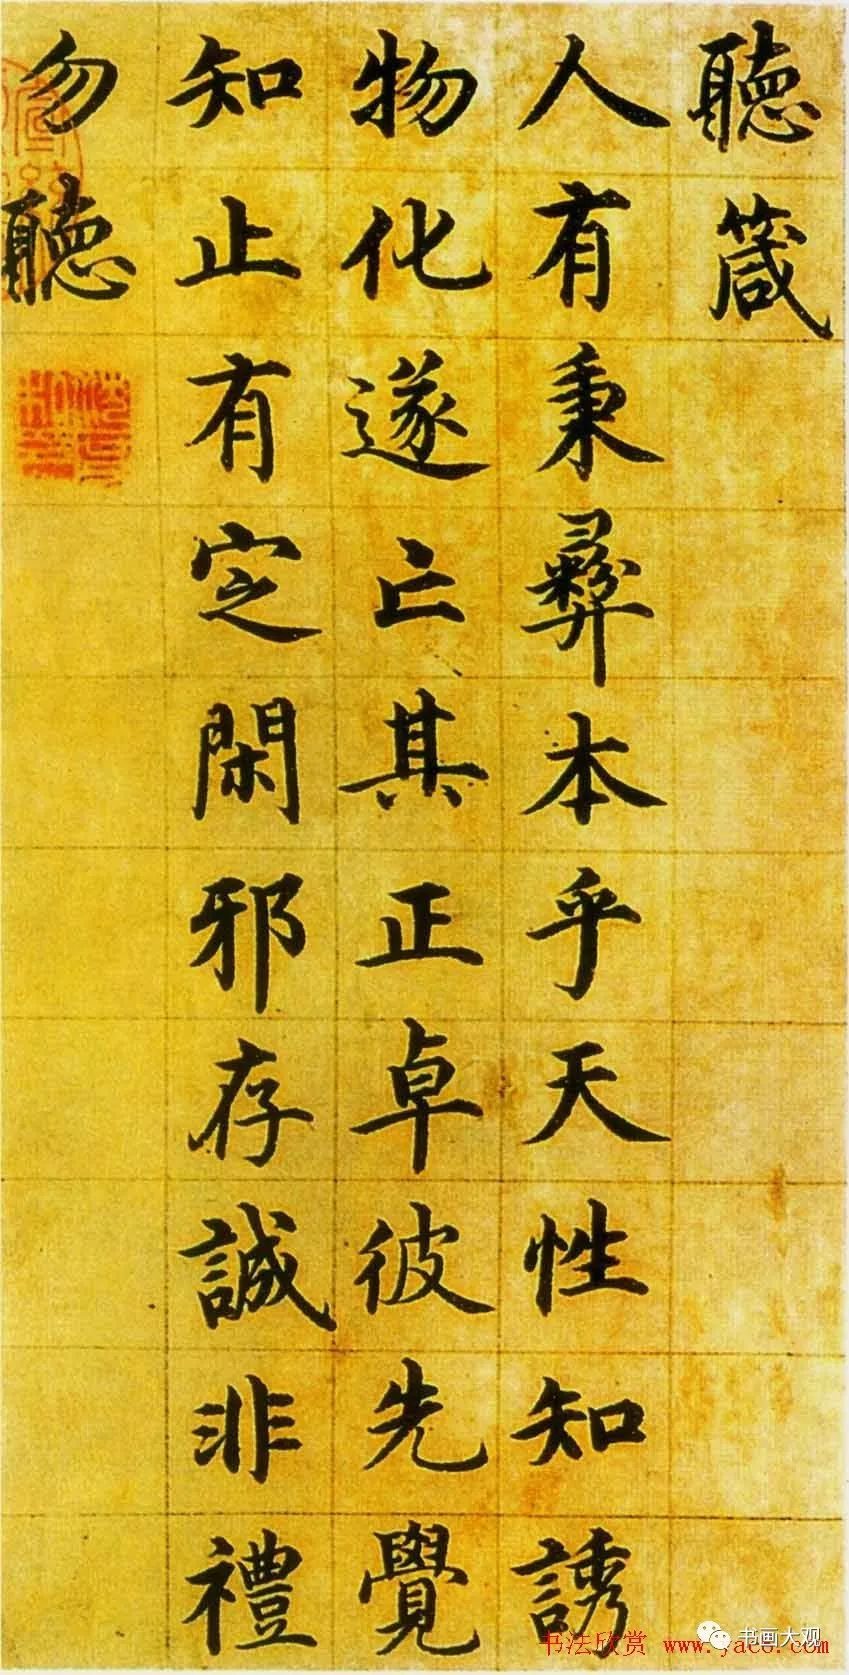 聽箴
人有秉彝本乎天性知誘
物化遂亡其正卓彼先覺
知止有定閑邪存誠非禮
勿聽
书法欣赏 www.yac8.com
书画大观